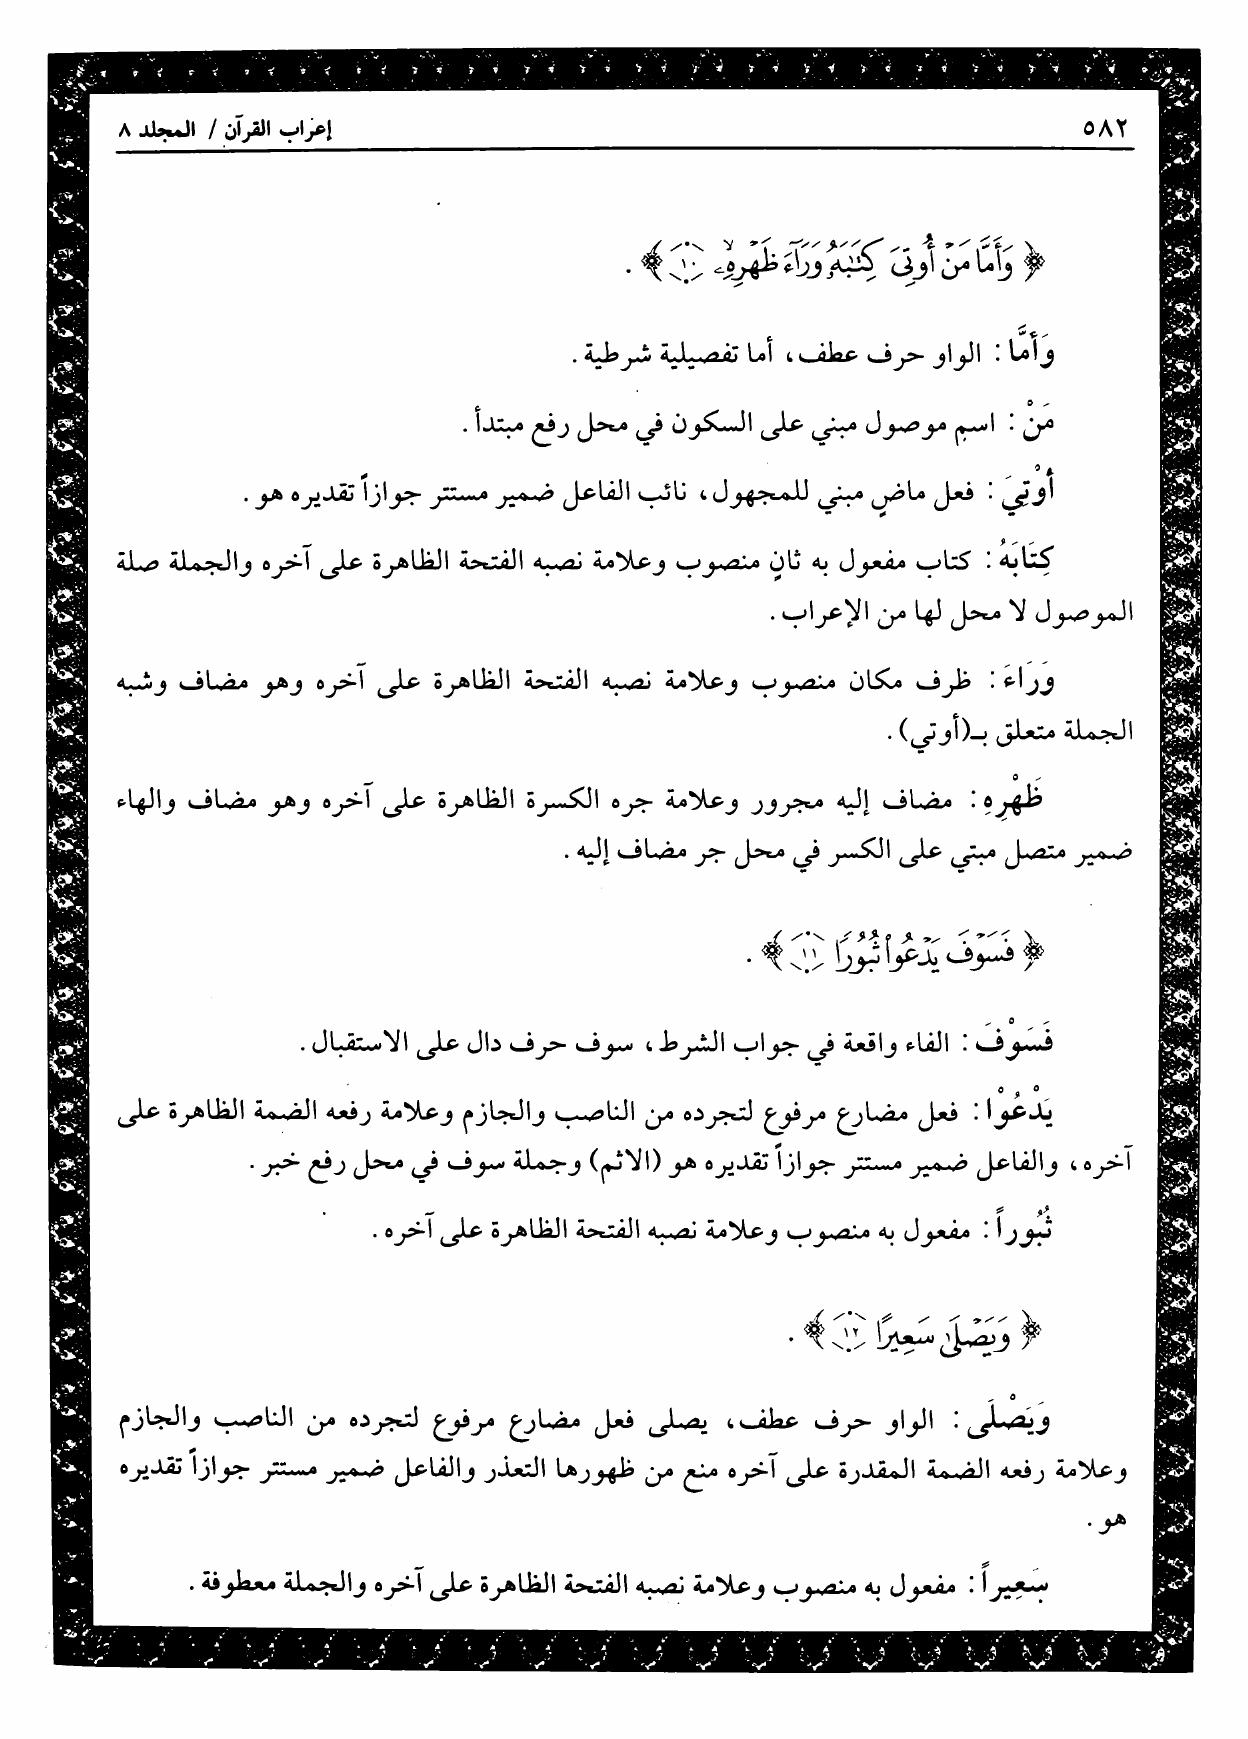 ٥٨٢
إعراب القرآن / المجلد ٨
﴿ وَأَمَّا مَنْ أُوتِيَ كِتَٰبَهُۥ وَرَآءَ ظَهْرِهِۦ ١٠ ﴾ .
وَأَمَّا : الواو حرف عطف، أما تفصيلية شرطية .
مَنْ : اسم موصول مبني على السكون في محل رفع مبتدأ .
أُوْتِيَ : فعل ماضٍ مبني للمجهول، نائب الفاعل ضمير مستتر جوازاً تقديره هو .
كِتَابَهُ : كتاب مفعول به ثانٍ منصوب وعلامة نصبه الفتحة الظاهرة على آخره والجملة صلة
الموصول لا محل لها من الإعراب .
وَرَاءَ : ظرف مكان منصوب وعلامة نصبه الفتحة الظاهرة على آخره وهو مضاف وشبه
الجملة متعلق بـ(أوتي) .
ظَهْرِهِ : مضاف إليه مجرور وعلامة جره الكسرة الظاهرة على آخره وهو مضاف والهاء
ضمير متصل مبني على الكسر في محل جر مضاف إليه .
﴿ فَسَوْفَ يَدْعُوا۟ ثُبُورًا ١١ ﴾ .
فَسَوْفَ : الفاء واقعة في جواب الشرط، سوف حرف دال على الاستقبال .
يَدْعُوْا : فعل مضارع مرفوع لتجرده من الناصب والجازم وعلامة رفعه الضمة الظاهرة على
آخره، والفاعل ضمير مستتر جوازاً تقديره هو (الاثم) وجملة سوف في محل رفع خبر .
ثُبُوراً : مفعول به منصوب وعلامة نصبه الفتحة الظاهرة على آخره .
﴿ وَيَصْلَىٰ سَعِيرًا ١٢ ﴾ .
وَيَصْلَى : الواو حرف عطف، يصلى فعل مضارع مرفوع لتجرده من الناصب والجازم
وعلامة رفعه الضمة المقدرة على آخره منع من ظهورها التعذر والفاعل ضمير مستتر جوازاً تقديره
هو .
سَعِيراً : مفعول به منصوب وعلامة نصبه الفتحة الظاهرة على آخره والجملة معطوفة .